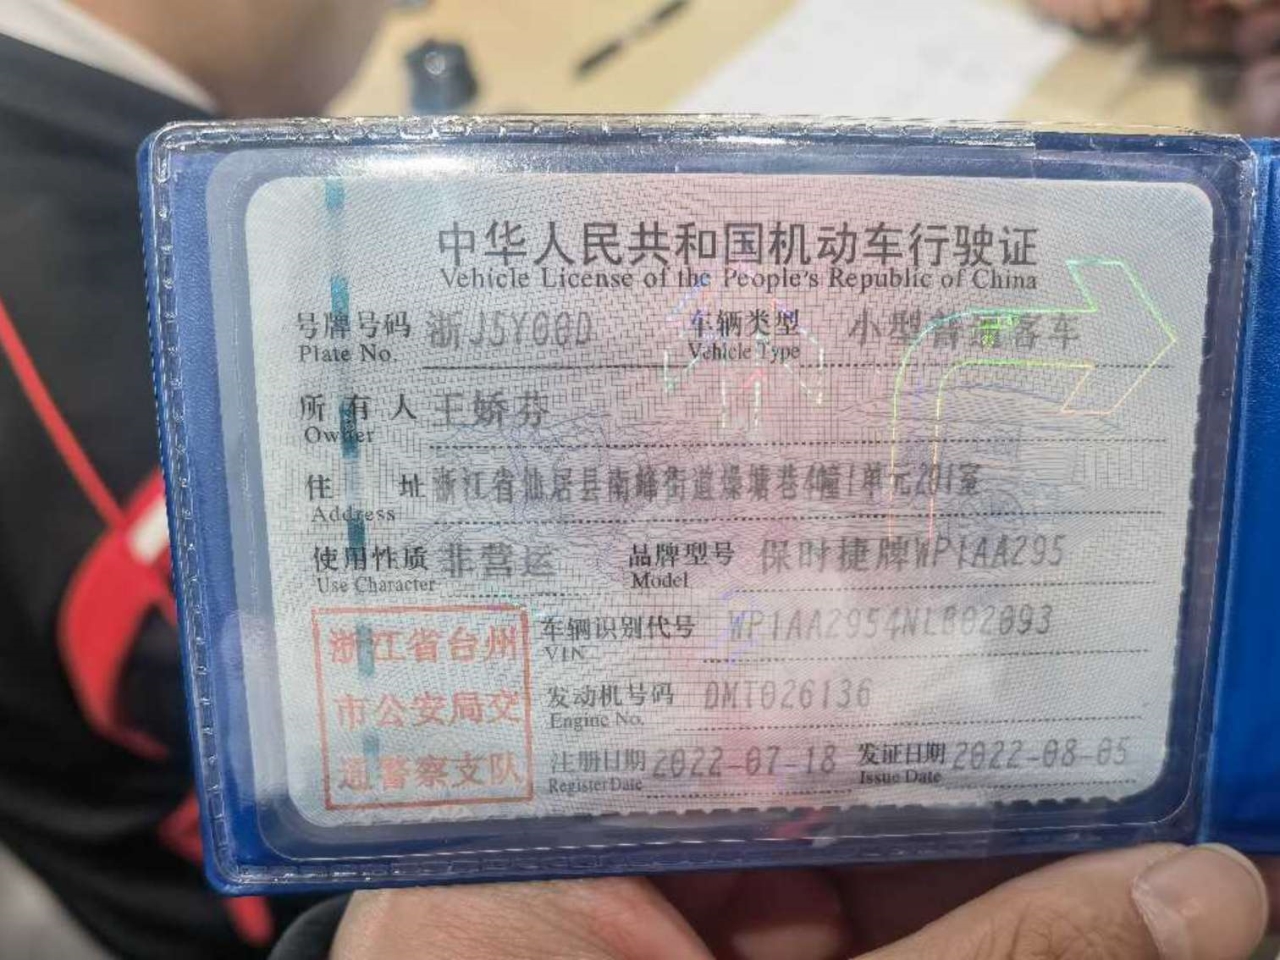 中华人民共和国机动车行驶证
Vehicle License of the People's Republic of China
号牌号码 浙J5Y00D 车辆类型 小型普通客车
Plate No. Vehicle Type
所有人 王娇芬
Owner
住址 浙江省仙居县南峰街道燥塘巷4幢1单元201室
Address
使用性质 非营运 品牌型号 保时捷牌WP1AA295
Use Character Model
车辆识别代号 WP1AA2954NLB02093
VIN
发动机号码 DMT026136
Engine No.
注册日期 2022-07-18 发证日期 2022-08-05
Register Date Issue Date
浙江省台州
市公安局交
通警察支队